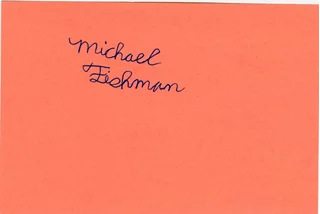 Michael
Fishman